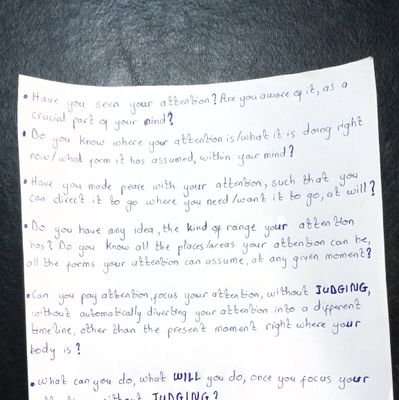 • Have you seen your attention? Are you aware of it, as a
crucial part of your mind?
• Do you know where your attention is/what it is doing right
now/what form it has assumed, within your mind?
• Have you made peace with your attention, such that you
can direct it to go where you need/want it to go, at will?
• Do you have any idea, the kind of range your attention
has? Do you know all the places/areas your attention can be,
all the forms your attention can assume, at any given moment?
• Can you pay attention, focus your attention, without JUDGING,
without automatically diverting your attention into a different
timeline, other than the present moment right where your
body is?
• What can you do, what WILL you do, once you focus your
without JUDGING?